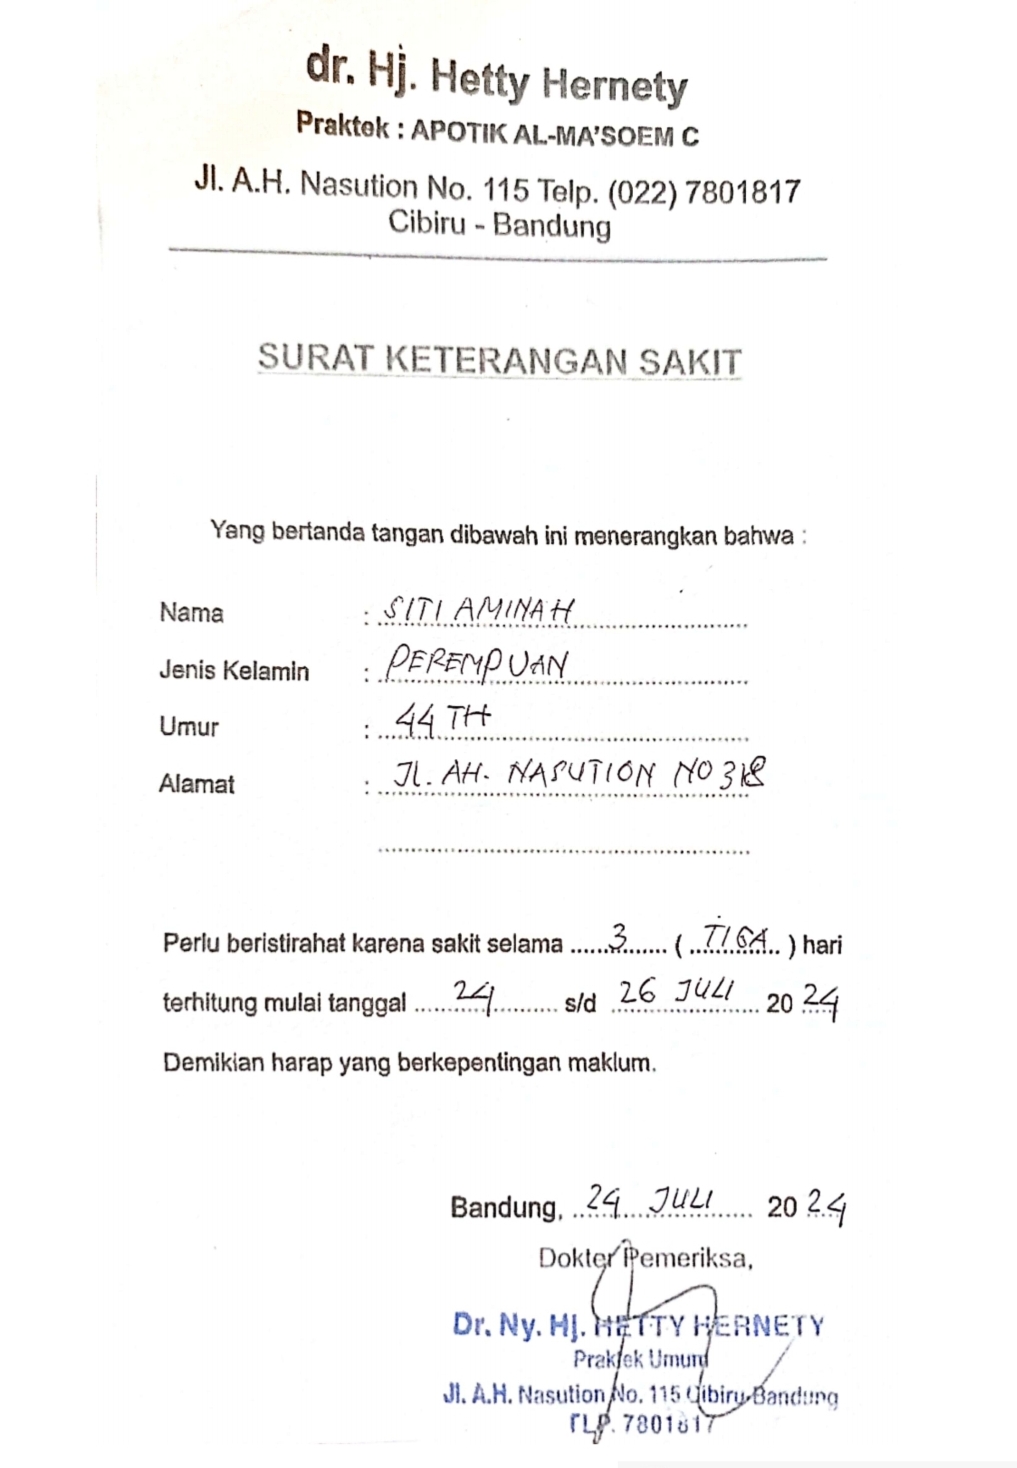 dr. Hj. Hetty Hernety
Praktek : APOTIK AL-MA'SOEM C
Jl. A.H. Nasution No. 115 Telp. (022) 7801817
Cibiru - Bandung
SURAT KETERANGAN SAKIT
Yang bertanda tangan dibawah ini menerangkan bahwa :
Nama : SITI AMINAH
Jenis Kelamin : PEREMPUAN
Umur : 44 TH
Alamat : Jl. AH. NASUTION NO
Perlu beristirahat karena sakit selama ......3....... ( ..TIGA.. ) hari
terhitung mulai tanggal ....24.... s/d 26 JULI 2024
Demikian harap yang berkepentingan maklum.
Bandung, 24 JULI 2024
Dokter Pemeriksa,
Dr. Ny. Hj. HETTY HERNETY
Praktek Umum
Jl. A.H. Nasution No. 115 Cibiru-Bandung
TLP. 7801817